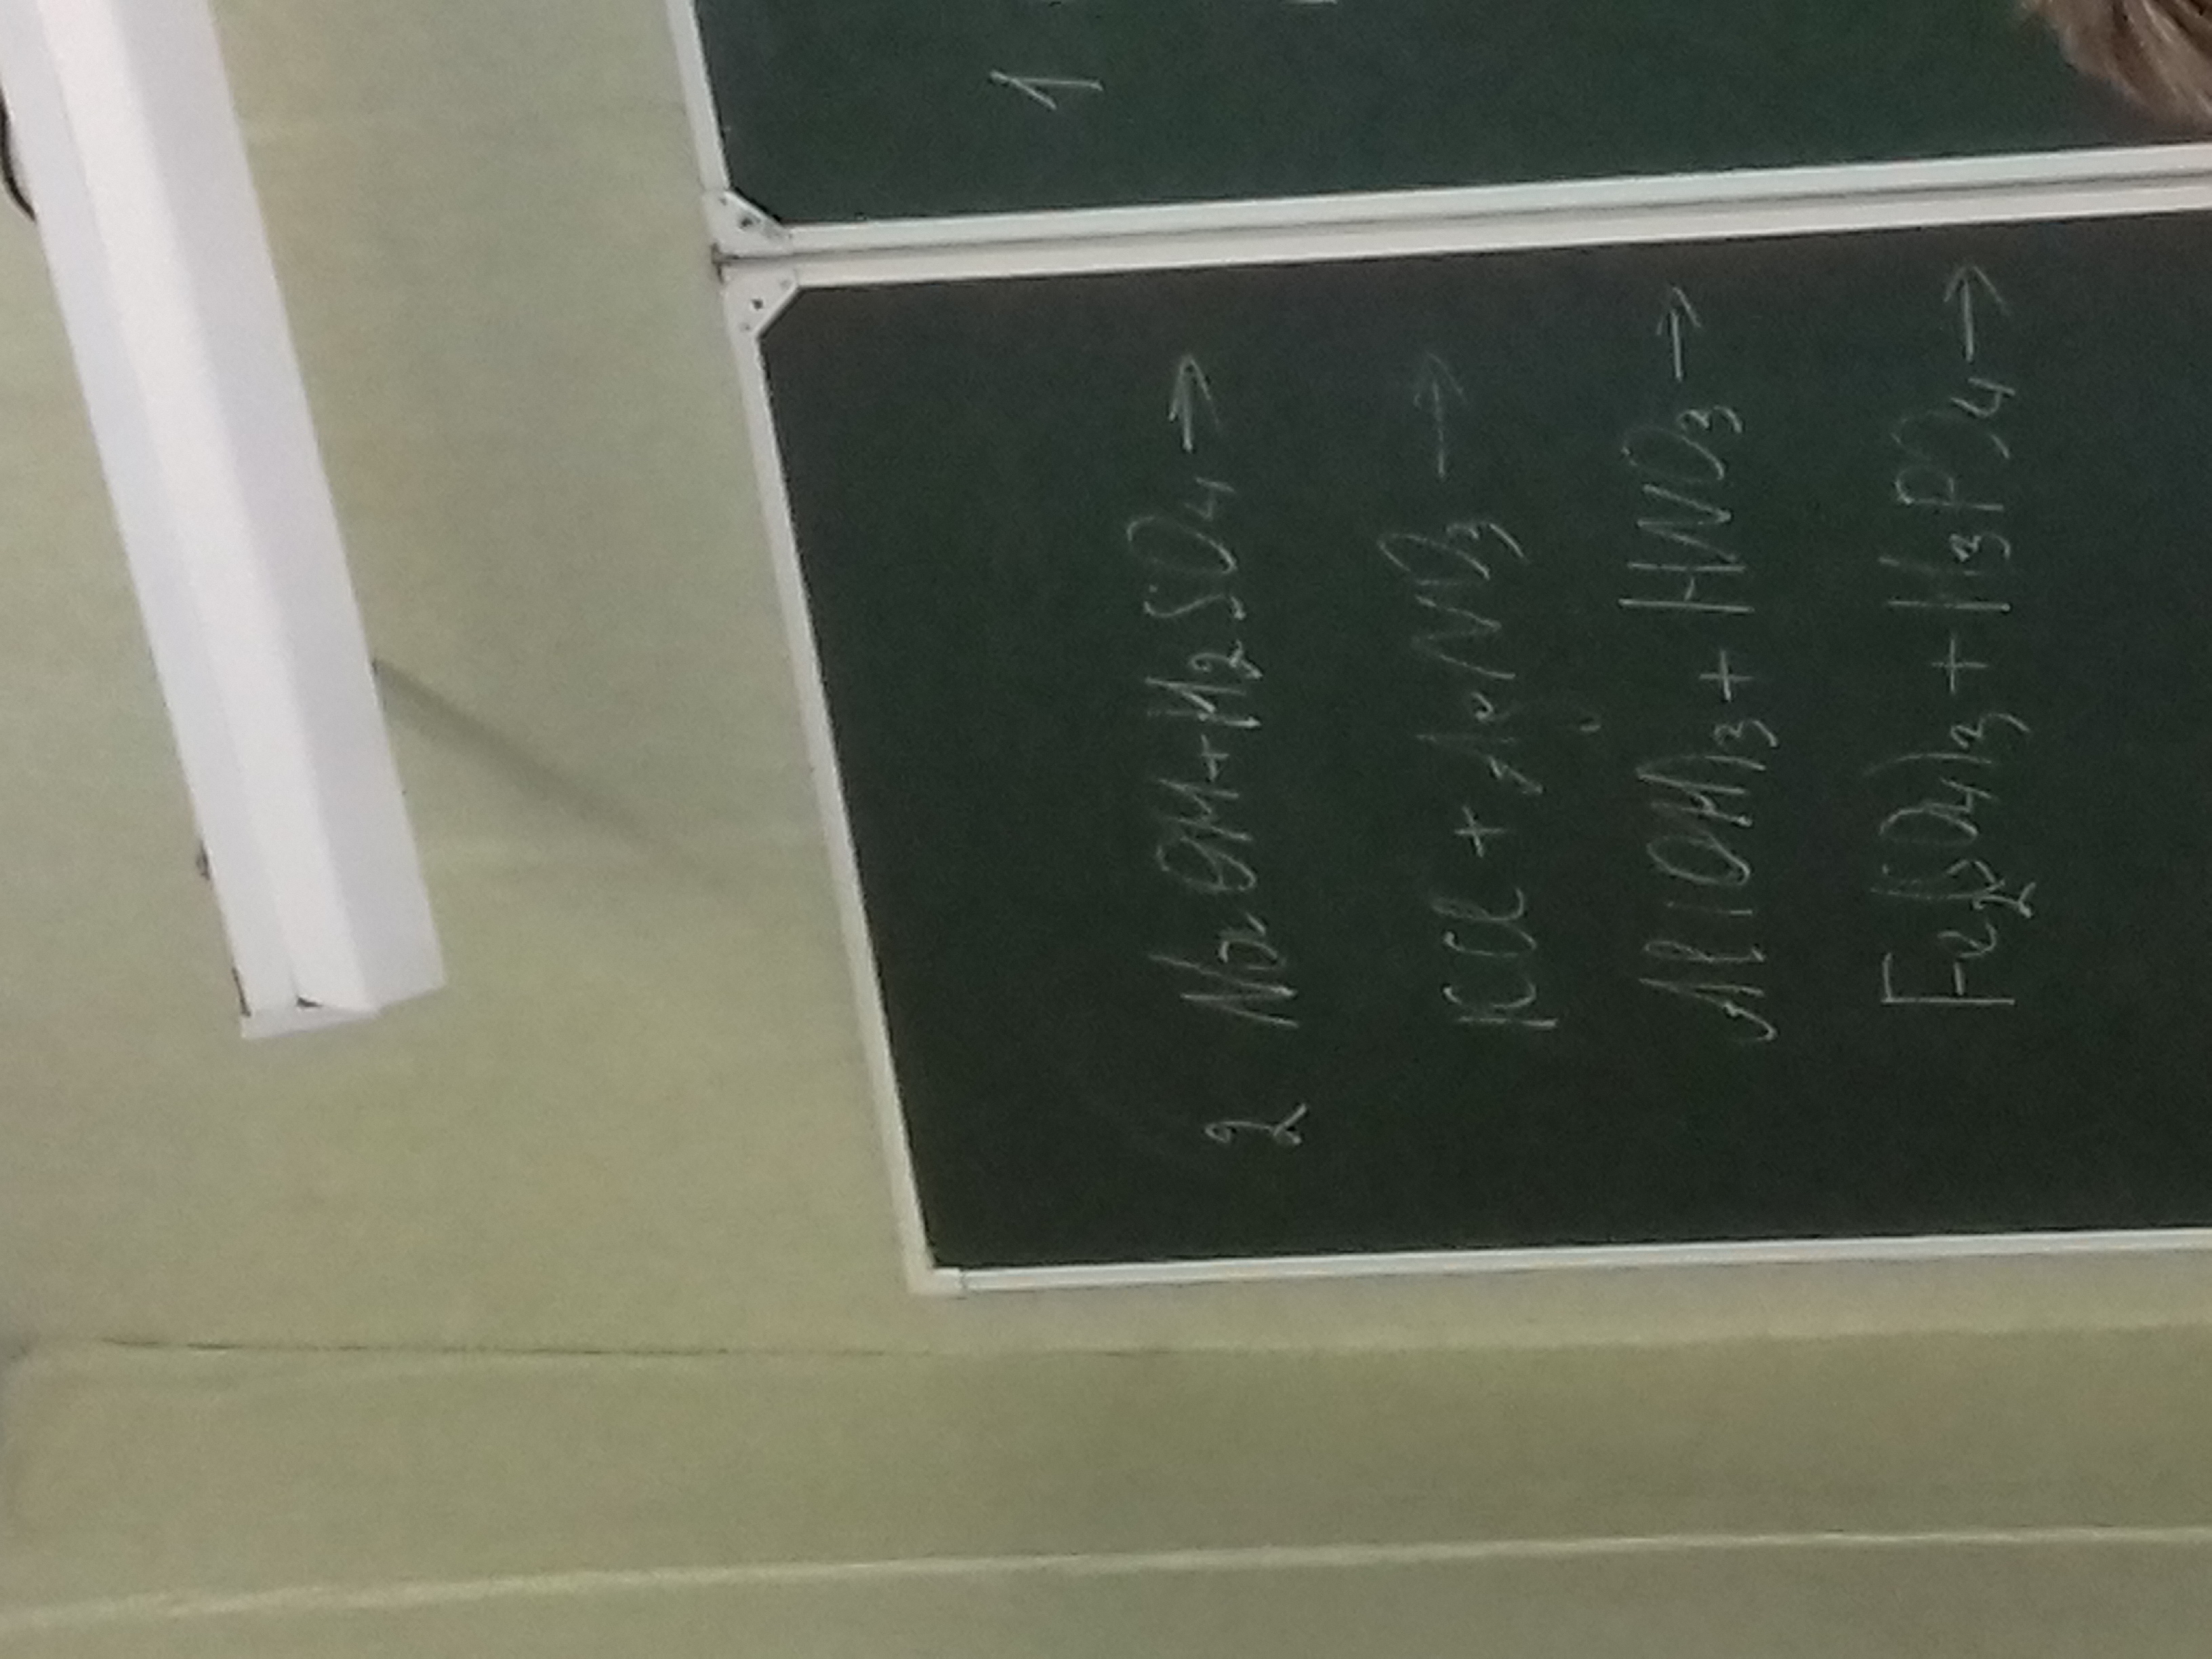 1
2 NaOH + H2SO4 →
KCl + AgNO3 →
Al(OH)3 + HNO3 →
Fe2(SO4)3 + H3PO4 →